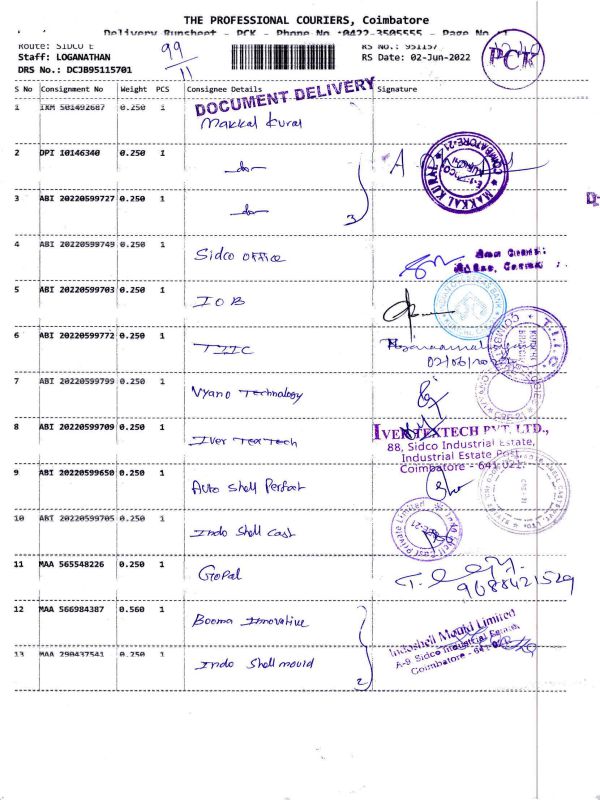 THE PROFESSIONAL COURIERS, Coimbatore
Delivery Runsheet - PCK - Phone No :0422-3505555 - Page No
Route: SIDCO E
Staff: LOGANATHAN
DRS No.: DCJB95115701
99/11
RS No.: 951157
RS Date: 02-Jun-2022
PCK
S No Consignment No Weight PCS Consignee Details Signature
DOCUMENT DELIVERY
1 IXM 501492687 0.250 1 Makkal Kural
2 DPI 10146340 0.250 1 -do-
MAKKAL KURAL COIMBATORE-21
3 ABI 20220599727 0.250 1 -do-
3
4 ABI 20220599749 0.250 1 Sidco office
5 ABI 20220599703 0.250 1 IOB
6 ABI 20220599772 0.250 1 TIIC
02/06/2022
T.I.I.C.
7 ABI 20220599799 0.250 1 Vyano Technology
8 ABI 20220599709 0.250 1 Iver Tex tech
IVER TEXTECH PVT. LTD.,
88, Sidco Industrial Estate,
Industrial Estate Post,
Coimbatore - 641 021.
9 ABI 20220599650 0.250 1 Auto Shell Perfect
10 ABI 20220599705 0.250 1 Indo Shell cast
Indo Shell cast Private Limited
11 MAA 565548226 0.250 1 Gopal
9688421529
12 MAA 566984387 0.560 1 Booma Innovative
13 MAA 290437541 0.250 1 Indo Shell mould
2
Indoshell Mould Limited
A-9 Sidco Industrial Estate
Coimbatore - 641 021